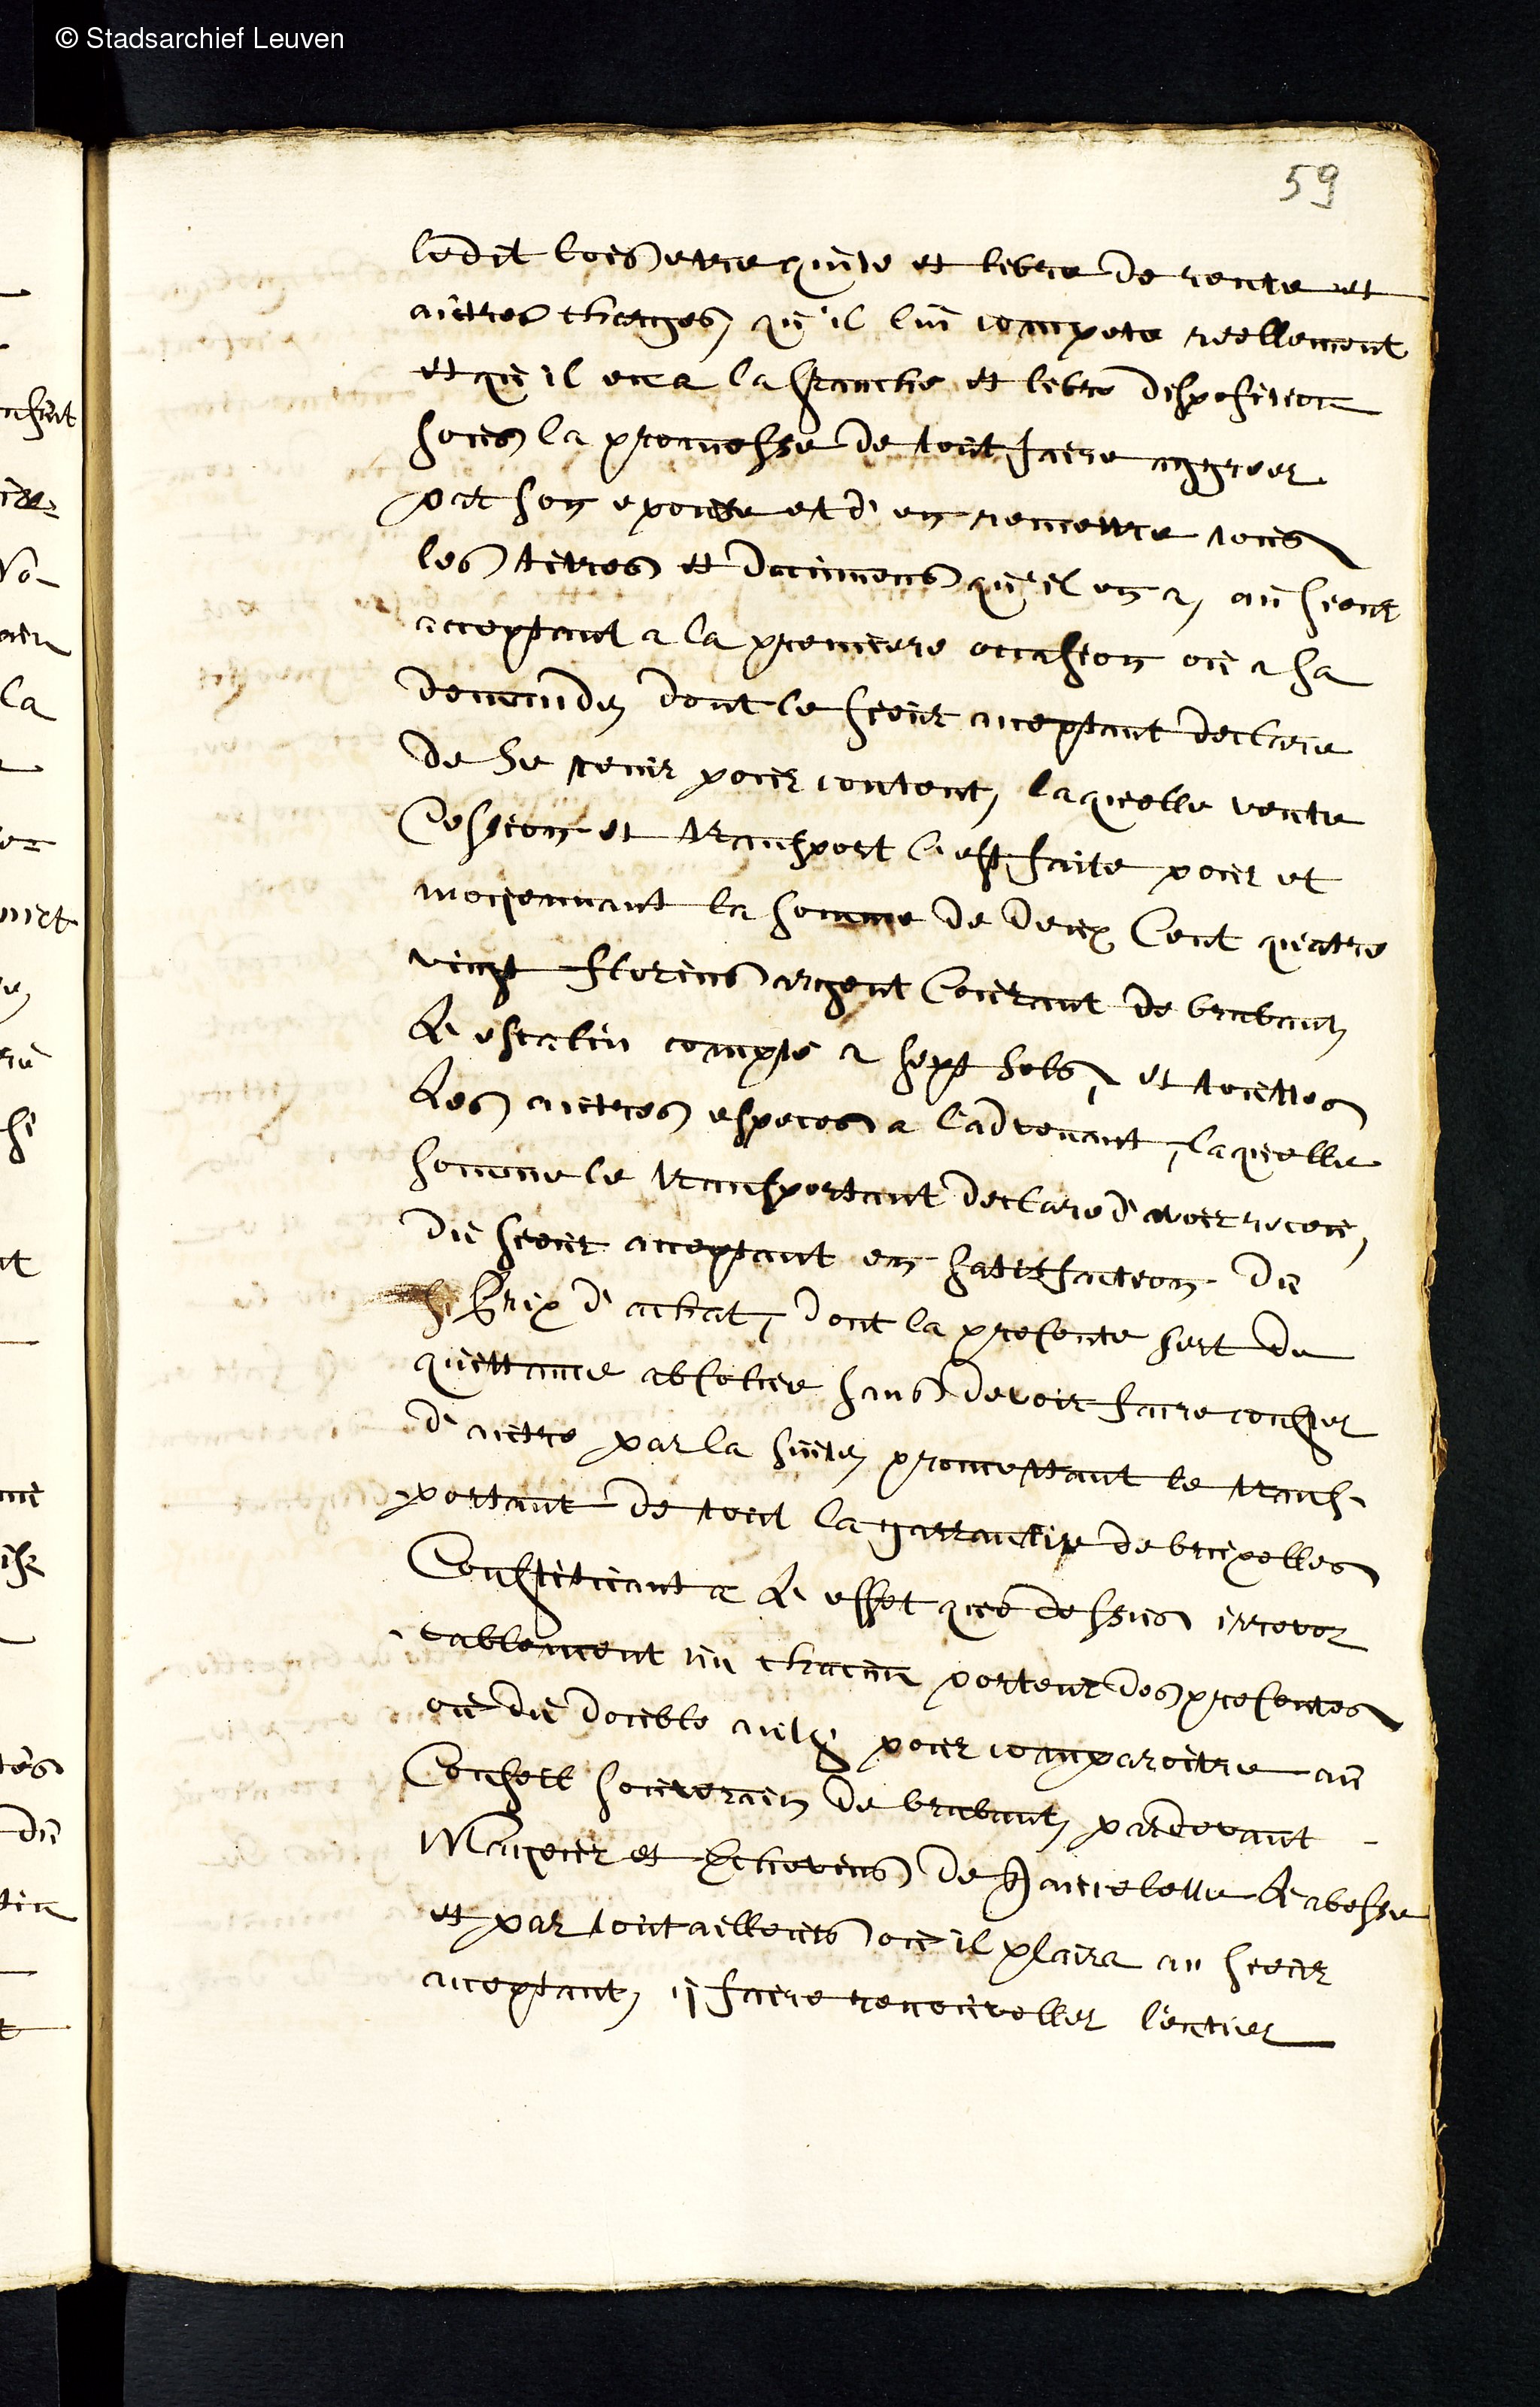 © Stadsarchief Leuven
59
ledit bois etre quite et libre de rente et
autres charges, qu'il lui compete reellement
et qu'il en a la franche et libre disposition
sous la promesse de tout faire aggreer
par son epouse et d'en remettre tous
les titres et documens qu'il en a, au sieur
acceptant a la premiere occasion ou a sa
demande, dont le sieur acceptant declare
de se tenir pour content, laquelle vente
Cession et transport l'est faite pour et
moyennant la somme de deux Cent quatre
vingt florins argent Courant de brabant,
L'escalin compté a sept sols, et touttes
Les autres especes a l'advenant, laquelle
somme le transportant declare d'avoir receu,
du sieur acceptant en satisfaction du
Prix d'achat, dont la presente sert de
quittance absolue sans devoir faire conster
d'autre par la suite, promettant le trans-
portant de tout la garrantire de bruxelles
Constituant a L'effet que dessus irrevo
cablement un chacun porteur des presentes
ou du double auth. pour comparoitre au
Conseil souverain de brabant, pardevant
Mayeur et Echevins de L'abesse
et par tout ailleurs ou il plaira au sieur
acceptant, y faire renouveller l'entier